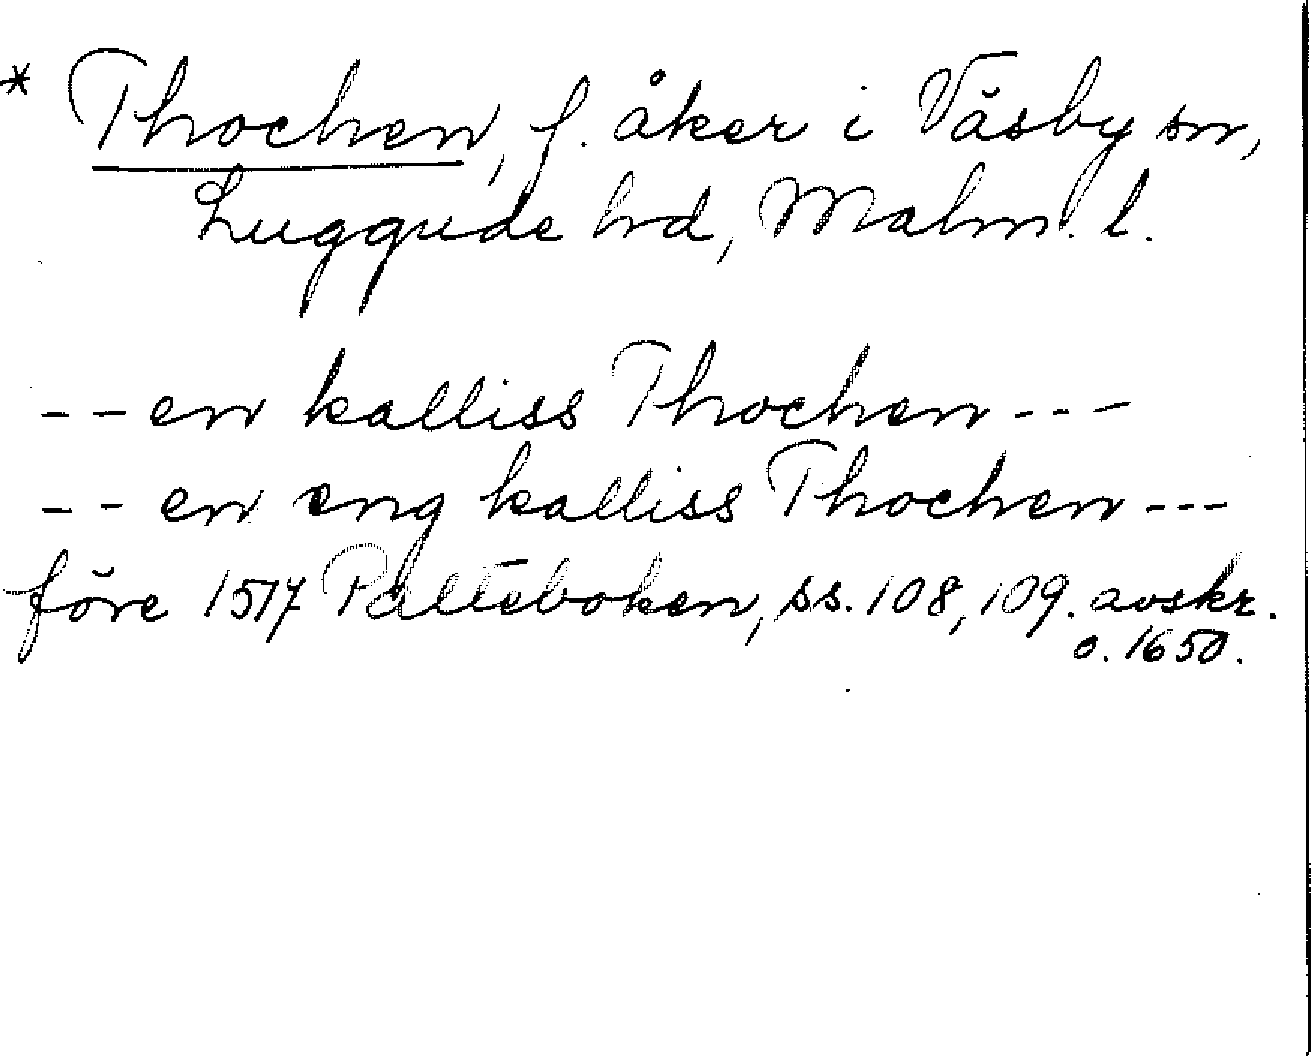 * Thochen, f. åker i Väsby sn,
Luggude hd, Malm. l.
-- en kalliss Thochen ---
-- en eng kalliss Thochen ---
före 1517 Palteboken, ss. 108, 109. avskr.
o. 1650.